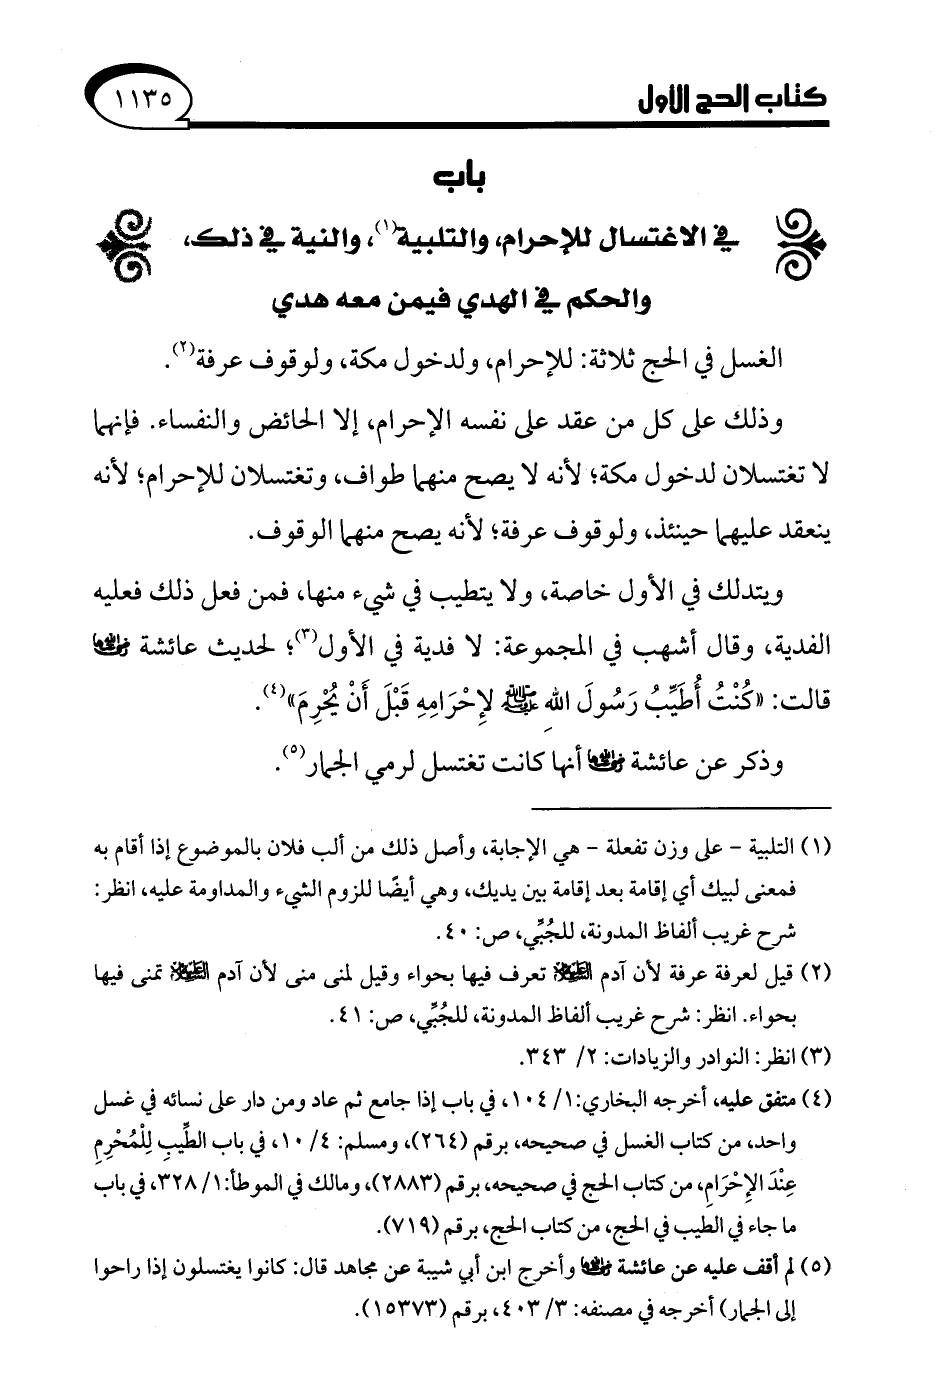 كتاب الحج الأول
١١٣٥
باب
في الاغتسال للإحرام، والتلبية(١)، والنية في ذلك،
والحكم في الهدي فيمن معه هدي
الغسل في الحج ثلاثة: للإحرام، ولدخول مكة، ولوقوف عرفة(٢).
وذلك على كل من عقد على نفسه الإحرام، إلا الحائض والنفساء. فإنهما
لا تغتسلان لدخول مكة؛ لأنه لا يصح منهما طواف، وتغتسلان للإحرام؛ لأنه
ينعقد عليهما حينئذ، ولوقوف عرفة؛ لأنه يصح منهما الوقوف.
ويتدلك في الأول خاصة، ولا يتطيب في شيء منها، فمن فعل ذلك فعليه
الفدية، وقال أشهب في المجموعة: لا فدية في الأول(٣)؛ لحديث عائشة رضي الله عنها
قالت: «كُنْتُ أُطَيِّبُ رَسُولَ اللهِ ﷺ لإِحْرَامِهِ قَبْلَ أَنْ يُحْرِمَ»(٤).
وذكر عن عائشة رضي الله عنها أنها كانت تغتسل لرمي الجمار(٥).
(١) التلبية - على وزن تفعلة - هي الإجابة، وأصل ذلك من ألب فلان بالموضوع إذا أقام به
فمعنى لبيك أي إقامة بعد إقامة بين يديك، وهي أيضًا للزوم الشيء والمداومة عليه، انظر:
شرح غريب ألفاظ المدونة، للجُبِّي، ص: ٤٠.
(٢) قيل لعرفة عرفة لأن آدم عليه السلام تعرف فيها بحواء وقيل لمنى منى لأن آدم عليه السلام تمنى فيها
بحواء. انظر: شرح غريب ألفاظ المدونة، للجُبِّي، ص: ٤١.
(٣) انظر: النوادر والزيادات: ٢/ ٣٤٣.
(٤) متفق عليه، أخرجه البخاري:١/ ١٠٤، في باب إذا جامع ثم عاد ومن دار على نسائه في غسل
واحد، من كتاب الغسل في صحيحه، برقم (٢٦٤)، ومسلم: ٤/ ١٠، في باب الطِّيبِ لِلْمُحْرِمِ
عِنْدَ الإِحْرَامِ، من كتاب الحج في صحيحه، برقم (٢٨٨٣)، ومالك في الموطأ:١/ ٣٢٨، في باب
ما جاء في الطيب في الحج، من كتاب الحج، برقم (٧١٩).
(٥) لم أقف عليه عن عائشة رضي الله عنها وأخرج ابن أبي شيبة عن مجاهد قال: كانوا يغتسلون إذا راحوا
إلى الجمار) أخرجه في مصنفه: ٣/ ٤٠٣، برقم (١٥٣٧٣).